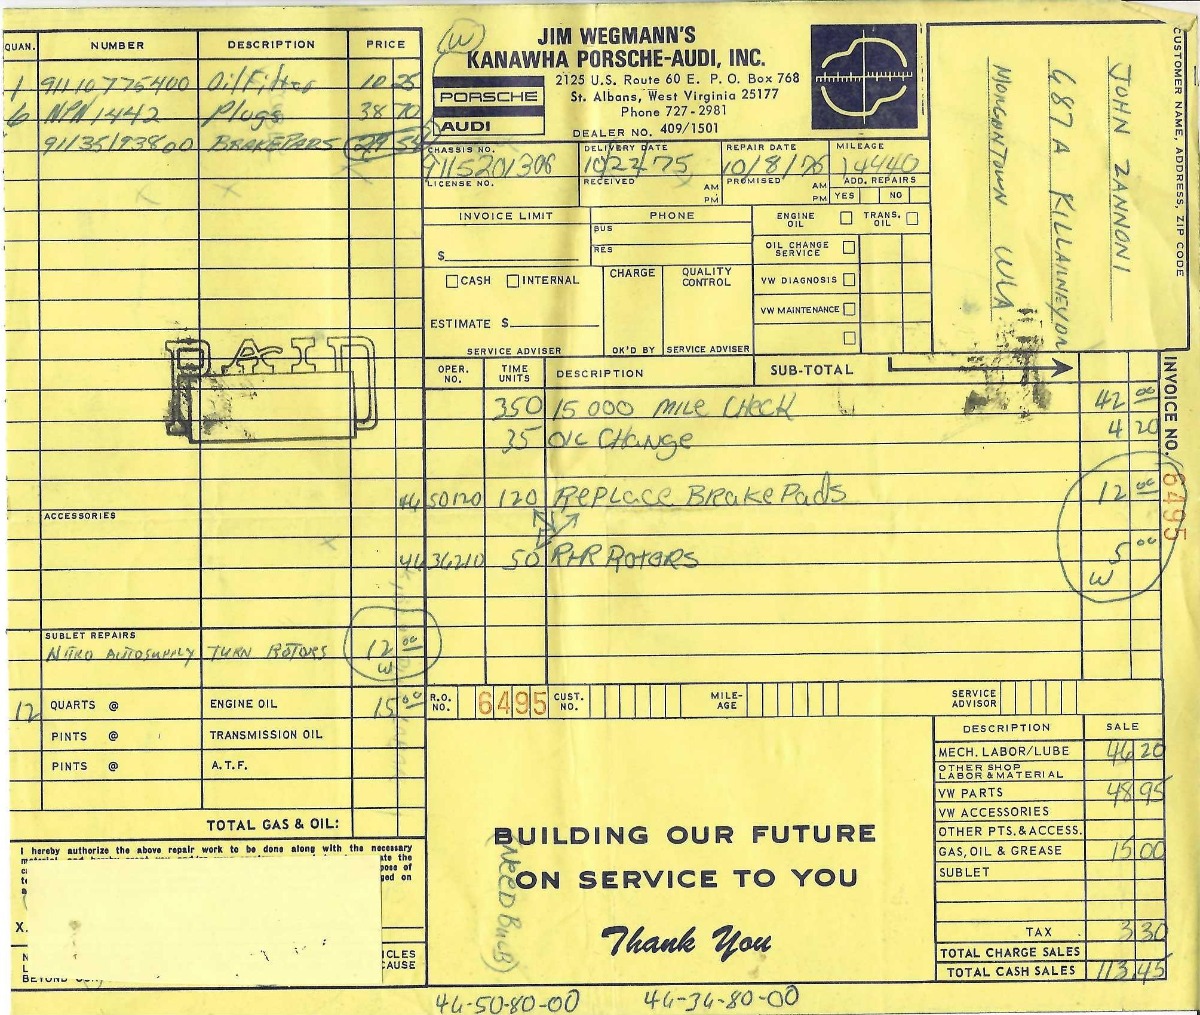 JIM WEGMANN'S
KANAWHA PORSCHE-AUDI, INC.
2125 U.S. Route 60 E. P. O. Box 768
St. Albans, West Virginia 25177
Phone 727-2981
DEALER NO. 409/1501
W
PORSCHE
AUDI
QUAN. NUMBER DESCRIPTION PRICE
1 91110775400 Oil Filter 10 25
6 NPN 1442 Plugs 38 70
91135193800 BRAKE PADS 29 54
CUSTOMER NAME, ADDRESS, ZIP CODE
JOHN ZANNONI
687A KILLARNEY DR
MORGANTOWN WVA
CHASSIS NO. DELIVERY DATE REPAIR DATE MILEAGE
9115201306 10/22/75 10/8/76 14440
LICENSE NO. RECEIVED AM PM PROMISED AM PM ADD. REPAIRS
YES NO
INVOICE LIMIT PHONE ENGINE OIL TRANS. OIL
BUS
$ RES OIL CHANGE SERVICE
CASH INTERNAL CHARGE QUALITY CONTROL VW DIAGNOSIS
VW MAINTENANCE
ESTIMATE $
SERVICE ADVISER OK'D BY SERVICE ADVISER
PAID
OPER. NO. TIME UNITS DESCRIPTION SUB-TOTAL
350 15 000 MILE CHECK 42 00
35 OIL CHANGE 4 20
44 50120 120 REPLACE BRAKE PADS 12 00
44 36210 50 R+R ROTORS 5 00
W
INVOICE NO. 6495
ACCESSORIES
SUBLET REPAIRS
NITRO AUTO SUPPLY TURN ROTORS 12 00
W
12 QUARTS @ ENGINE OIL 15 00
PINTS @ TRANSMISSION OIL
PINTS @ A.T.F.
TOTAL GAS & OIL:
R.O. NO. 6495 CUST. NO. MILE-AGE SERVICE ADVISOR
DESCRIPTION SALE
MECH. LABOR/LUBE 46 20
OTHER SHOP LABOR & MATERIAL
VW PARTS 48 95
VW ACCESSORIES
OTHER PTS. & ACCESS.
GAS, OIL & GREASE 15 00
SUBLET
TAX 3 30
TOTAL CHARGE SALES
TOTAL CASH SALES 113 45
I hereby authorize the above repair work to be done along with the necessary
X.
BUILDING OUR FUTURE
ON SERVICE TO YOU
Thank You
(NEED Bulb)
44-50-80-00 44-34-80-00